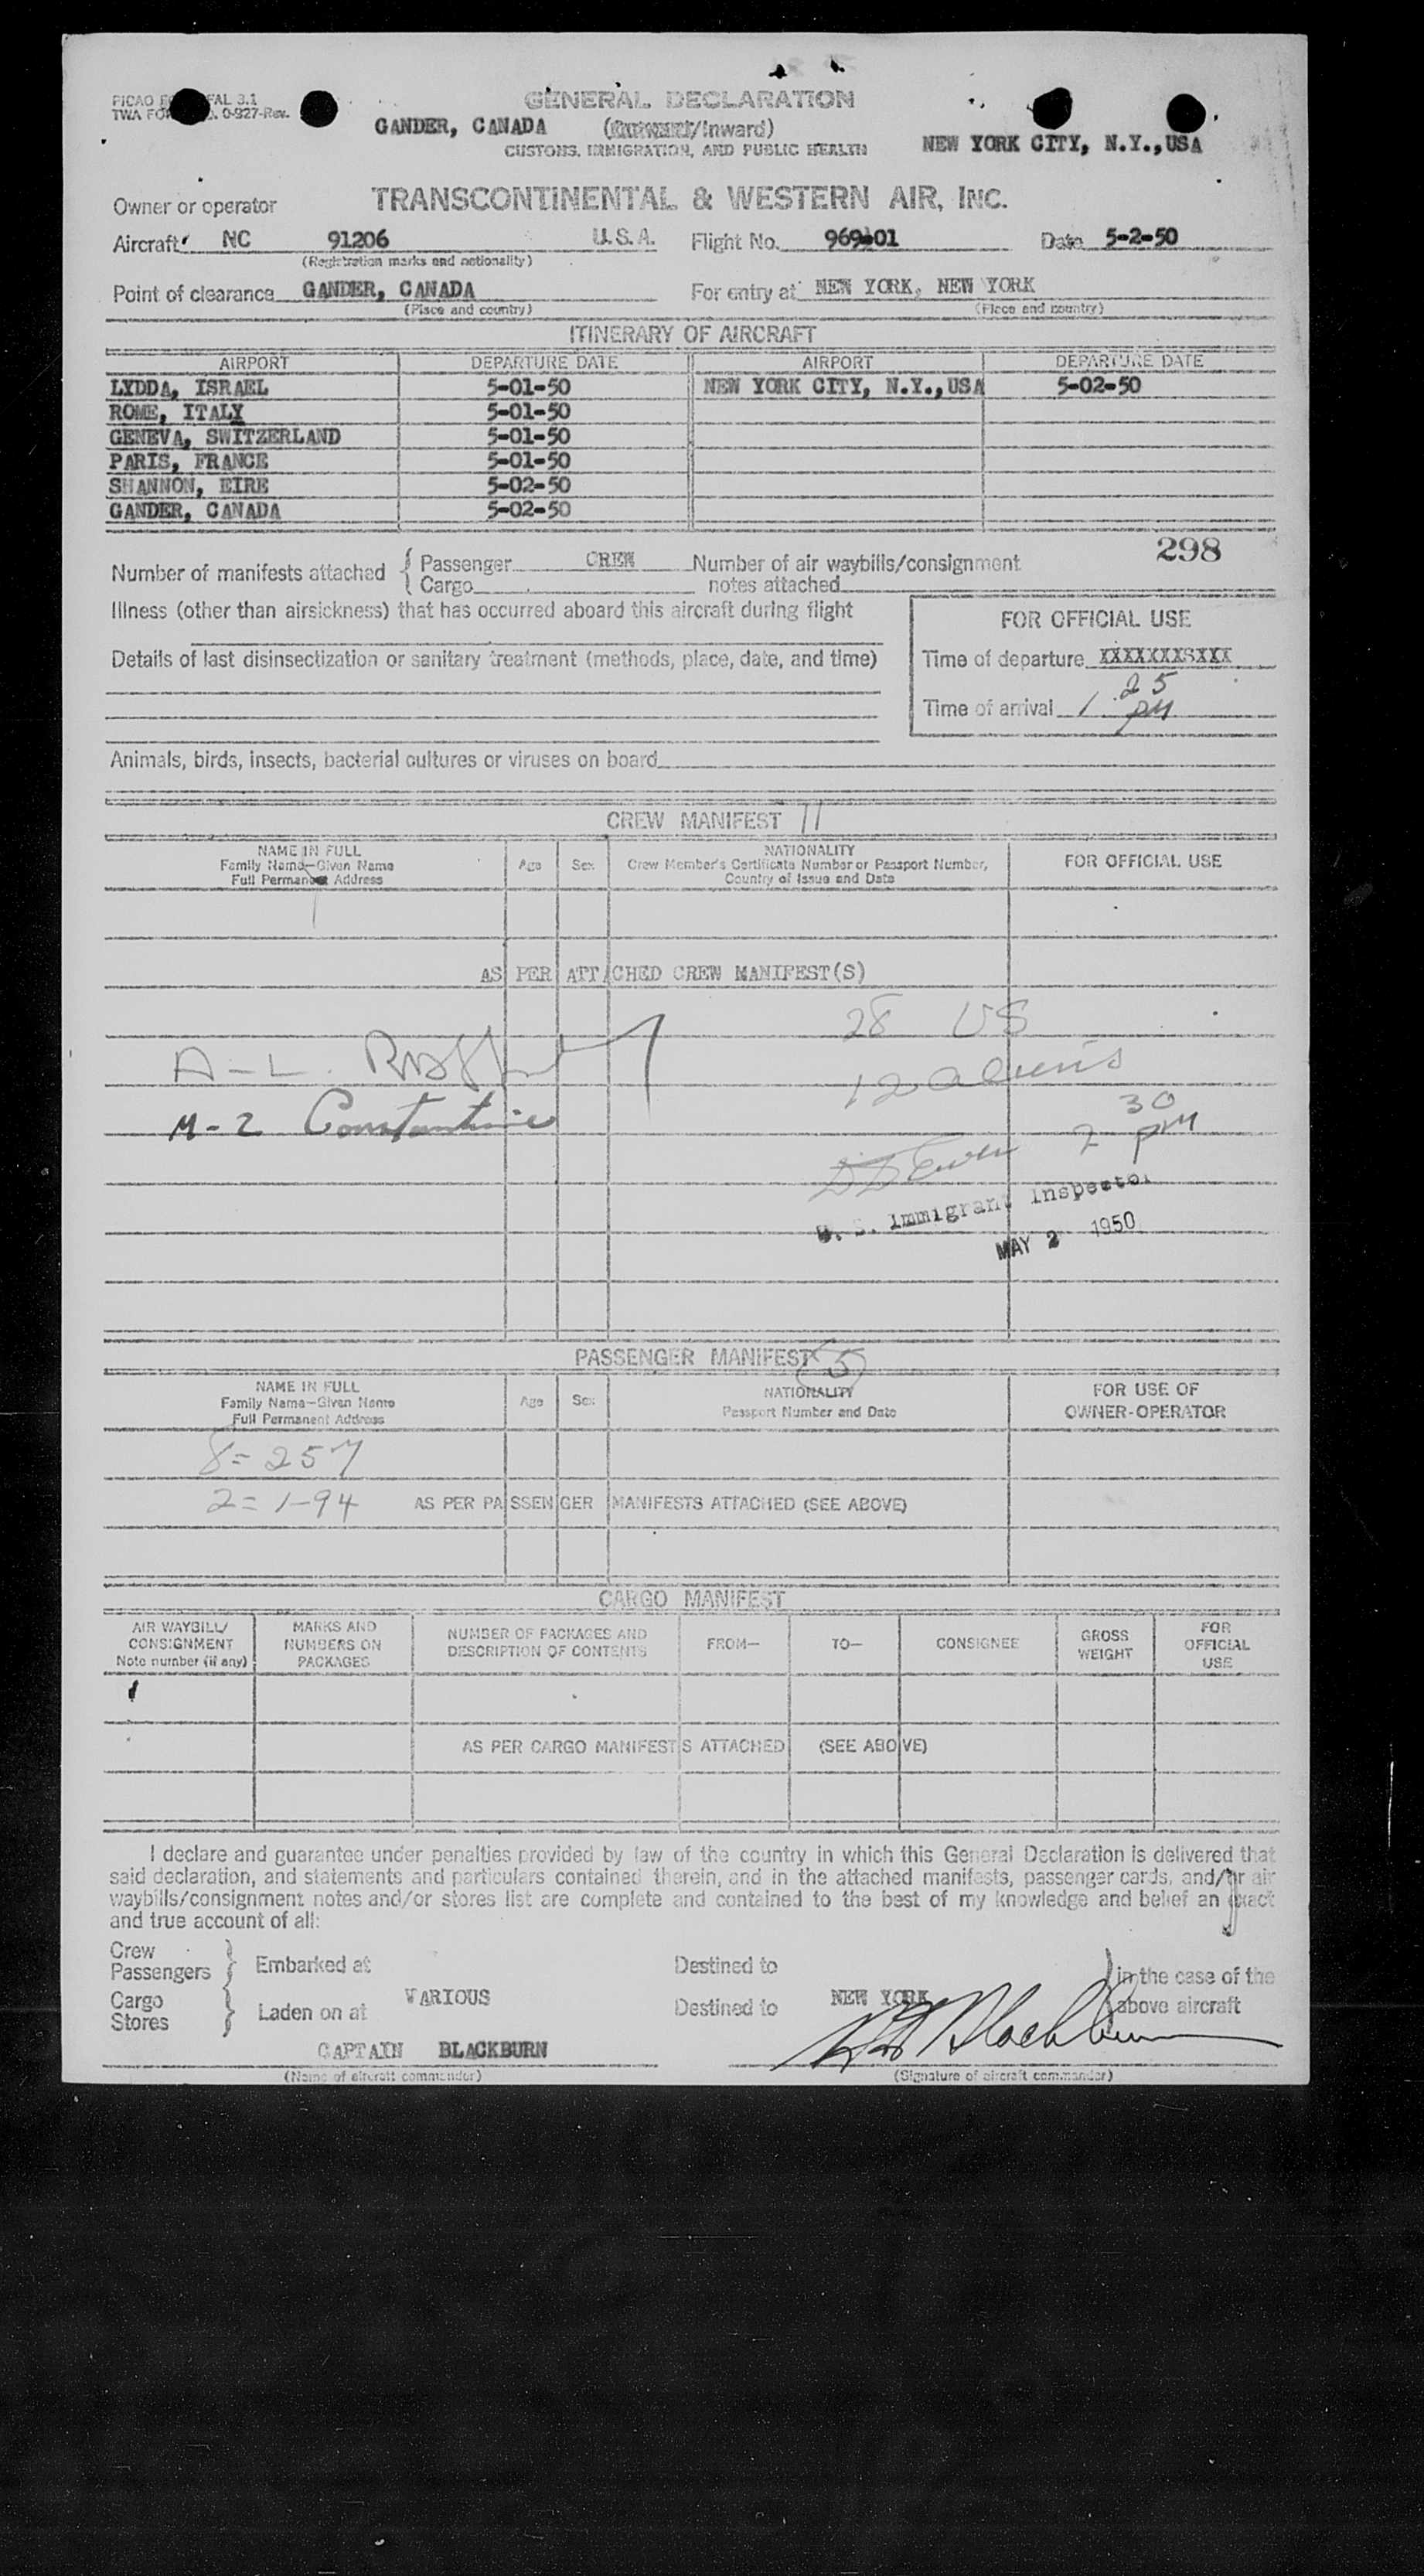 GENERAL DECLARATION
GANDER, CANADA (Outward/Inward) NEW YORK CITY, N.Y.,USA
CUSTOMS, IMMIGRATION, AND PUBLIC HEALTH
Owner or operator TRANSCONTINENTAL & WESTERN AIR, INC.
Aircraft NC 91206 U.S.A. Flight No. 969-01 Date 5-2-50
(Registration marks and nationality)
Point of clearance GANDER, CANADA For entry at NEW YORK, NEW YORK
(Place and country) (Place and country)
ITINERARY OF AIRCRAFT
AIRPORT DEPARTURE DATE AIRPORT DEPARTURE DATE
LYDDA, ISRAEL 5-01-50 NEW YORK CITY, N.Y.,USA 5-02-50
ROME, ITALY 5-01-50
GENEVA, SWITZERLAND 5-01-50
PARIS, FRANCE 5-01-50
SHANNON, EIRE 5-02-50
GANDER, CANADA 5-02-50
298
Number of manifests attached { Passenger CREW Number of air waybills/consignment
Cargo notes attached
Illness (other than airsickness) that has occurred aboard this aircraft during flight
FOR OFFICIAL USE
Details of last disinsectization or sanitary treatment (methods, place, date, and time)
Time of departure XXXXXXXSXXX
Time of arrival 1 25 PM
Animals, birds, insects, bacterial cultures or viruses on board
CREW MANIFEST 11
NAME IN FULL
Family Name—Given Name
Full Permanent Address
Age Sex
NATIONALITY
Crew Member's Certificate Number or Passport Number,
Country of Issue and Date
FOR OFFICIAL USE
AS PER ATTACHED CREW MANIFEST(S)
28 US
A-L.
12 aliens
M-2 Constantine
2 30 PM
U. S. Immigrant Inspector
MAY 2 1950
PASSENGER MANIFEST 5
NAME IN FULL
Family Name—Given Name
Full Permanent Address
Age Sex
NATIONALITY
Passport Number and Date
FOR USE OF
OWNER-OPERATOR
8=257
2=1-94 AS PER PASSENGER MANIFESTS ATTACHED (SEE ABOVE)
CARGO MANIFEST
AIR WAYBILL/
CONSIGNMENT
Note number (if any)
MARKS AND
NUMBERS ON
PACKAGES
NUMBER OF PACKAGES AND
DESCRIPTION OF CONTENTS
FROM— TO— CONSIGNEE
GROSS
WEIGHT
FOR
OFFICIAL
USE
AS PER CARGO MANIFESTS ATTACHED (SEE ABOVE)
I declare and guarantee under penalties provided by law of the country in which this General Declaration is delivered that
said declaration, and statements and particulars contained therein, and in the attached manifests, passenger cards, and/or air
waybills/consignment notes and/or stores list are complete and contained to the best of my knowledge and belief an exact
and true account of all:
Crew
Passengers } Embarked at Destined to } in the case of the
Cargo
Stores } Laden on at VARIOUS Destined to NEW YORK above aircraft
CAPTAIN BLACKBURN Blackburn
(Name of aircraft commander) (Signature of aircraft commander)